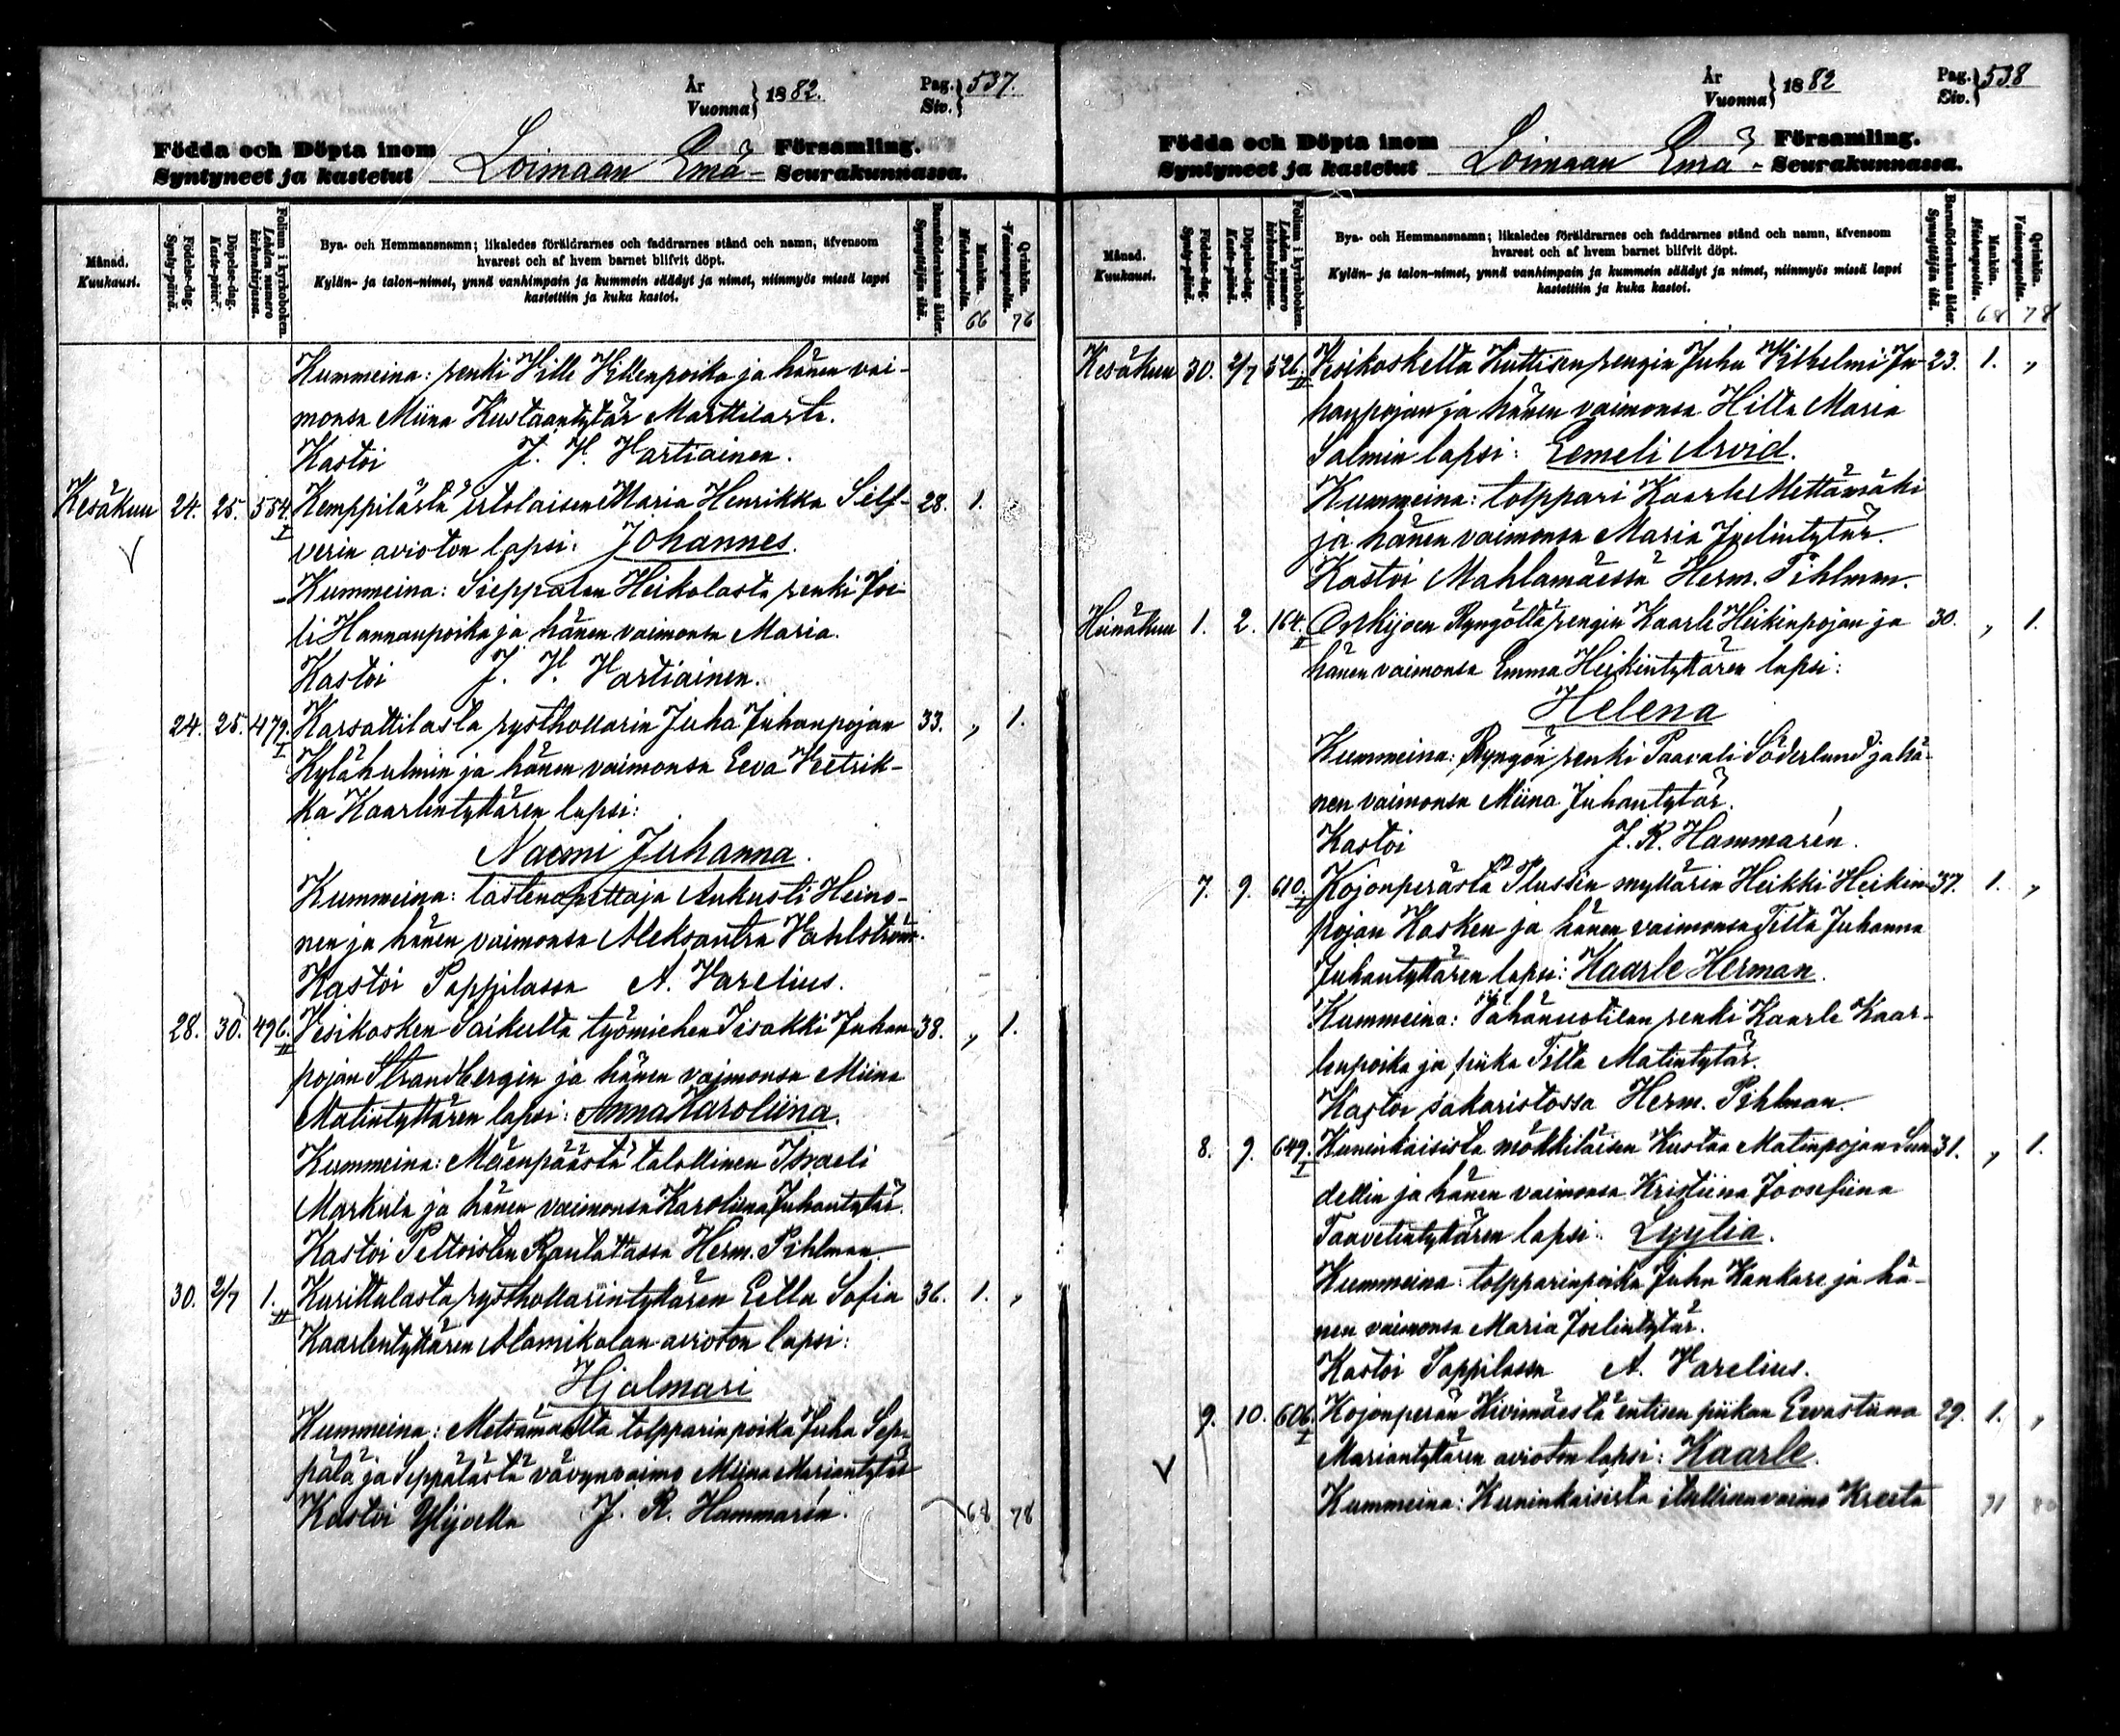 År
Vuonna } 1882. Pag.
Siv. } 537.
Födda och Döpta inom
Syntyneet ja kastetut Loimaan Emä- Församling.
Seurakunnassa.
Månad.
Kuukausi.
Födelse-dag.
Synty-päivä.
Döpelse-dag.
Kaste-päivä.
Folium i kyrkoboken.
Lehden numero kirkonkirjassa.
Bya- och Hemmansnamn; likaledes föräldrarnes och faddrarnes stånd och namn, äfvensom
hvarest och af hvem barnet blifvit döpt.
Kylän- ja talon-nimet, ynnä vanhimpain ja kummein säädyt ja nimet, niinmyös missä lapsi
kastettiin ja kuka kastoi.
Barnaföderskans ålder.
Synnyttäjän ikä.
Mankön.
Miehenpuolta.
Qvinkön.
Vaimonpuolta.
66 76
Kummeina: renki Ville Villenpoika ja hänen vai-
monsa Miina Kustaantytär Marttilasta.
Kastoi J. V. Hartiainen.
Kesäkuu 24. 25. 554. I Kemppilästä itsolaisen Maria Henrikka Silf- 28. 1.
verin avioton lapsi: Johannes.
Kummeina: Sieppalan Heikolasta renki Joe-
li Hannanpoika ja hänen vaimonsa Maria.
Kastoi J. V. Hartiainen.
24. 25. 479. I Karsattilasta rysthollarin Juha Juhanpojan 33. „ 1.
Kylähulmin ja hänen vaimonsa Eeva Vretrik-
ka Kaarlentyttären lapsi:
Naemi Juhanna.
Kummeina: lastenopettaja Aukusti Heino-
nen ja hänen vaimonsa Aleksantra Vahlström.
Kastoi Pappilassa A. Varelius.
28. 30. 496. II Vesikosken Saikulta työmiehen Iisakki Juhan 38. „ 1.
pojan Strandbergin ja hänen vaimonsa Miina
Matintyttären lapsi: Anna Karoliina.
Kummeina: Mäenpäästä talollinen Israeli
Markula ja hänen vaimonsa Karoliina Juhantytär.
Kastoi Peltoisten Rautalassa Herm. Pihlman.
30. 2/7 1. II Kurittulasta rysthollarintyttären Eella Sofia 36. 1. „
Kaarlentyttären Alamikolan avioton lapsi:
Hjalmari
Kummeina: Metsämaalta tolpparinpoika Juha Sep-
pälä ja Seppälästä vävynvaimo Miina Mariantytär
Kastoi Ylijoella J. R. Hammarén. 68 78
År
Vuonna } 1882 Pag.
Siv. } 538
Födda och Döpta inom
Syntyneet ja kastetut Loimaan Emä- Församling.
Seurakunnassa.
Månad.
Kuukausi.
Födelse-dag.
Synty-päivä.
Döpelse-dag.
Kaste-päivä.
Folium i kyrkoboken.
Lehden numero kirkonkirjassa.
Bya- och Hemmansnamn; likaledes föräldrarnes och faddrarnes stånd och namn, äfvensom
hvarest och af hvem barnet blifvit döpt.
Kylän- ja talon-nimet, ynnä vanhimpain ja kummein säädyt ja nimet, niinmyös missä lapsi
kastettiin ja kuka kastoi.
Barnaföderskans ålder.
Synnyttäjän ikä.
Mankön.
Miehenpuolta.
Qvinkön.
Vaimonpuolta.
68 78
Kesäkuu 30. 2/7 526. II Vesikoskelta Kuttisen rengin Juha Vilhelmi Ju- 23. 1. „
hanpojan ja hänen vaimonsa Hilta Maria
Salmin lapsi: Eemeli Arvid.
Kummeina: tolppari Kaarle Mettämäki
ja hänen vaimonsa Maria Joelintytär.
Kastoi Mahlamäessä Herm. Pihlman.
Heinäkuu 1. 2. 164. II Onkijoen Ryngöltä rengin Kaarle Heikinpojan ja 30. „ 1.
hänen vaimonsa Emma Heikintyttären lapsi:
Helena
Kummeina: Ryngön renki Paavali Söderlund ja hä-
nen vaimonsa Miina Juhantytär.
Kastoi J. R. Hammarén.
7. 9. 610. I Kojonperästä Plussin myllärin Heikki Heikin- 37. 1. „
pojan Kasken ja hänen vaimonsa Tilta Juhanna
Juhantyttären lapsi: Kaarle Herman.
Kummeina: Vähänuotilan renki Kaarle Kaar-
lenpoika ja piika Tilta Matintytär.
Kastoi sakaristossa Herm. Pihlman.
8. 9. 649. I Kuninkaisista mökkiläisen Kustaa Matinpojan Sun- 31. „ 1.
dellin ja hänen vaimonsa Kristiina Joosefiina
Taavetintyttären lapsi: Lyytia.
Kummeina: tolpparinpoika Juha Kankare ja hä-
nen vaimonsa Maria Joelintytär.
Kastoi Pappilassa A. Varelius.
9. 10. 606. I Kojonperän Kivimäestä entisen piikan Eevastiina 29. 1. „
Mariantyttären avioton lapsi: Kaarle.
Kummeina: Kuninkaisista itsellinen vaimo Kreeta 71 80